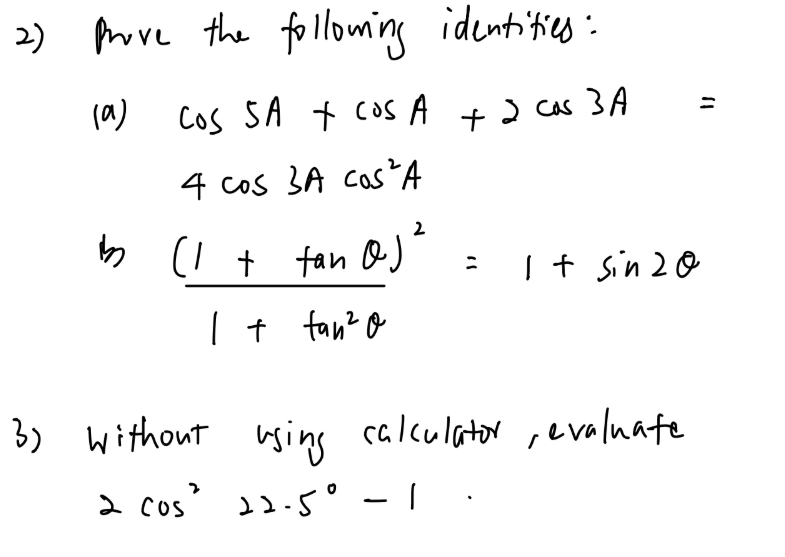 2) Prove the following identities:
(a) cos 5A + cos A + 2 cos 3A =
4 cos 3A cos²A
b) (1 + tan θ)² / 1 + tan²θ = 1 + sin 2θ
3) Without using calculator, evaluate
2 cos² 22.5° - 1.